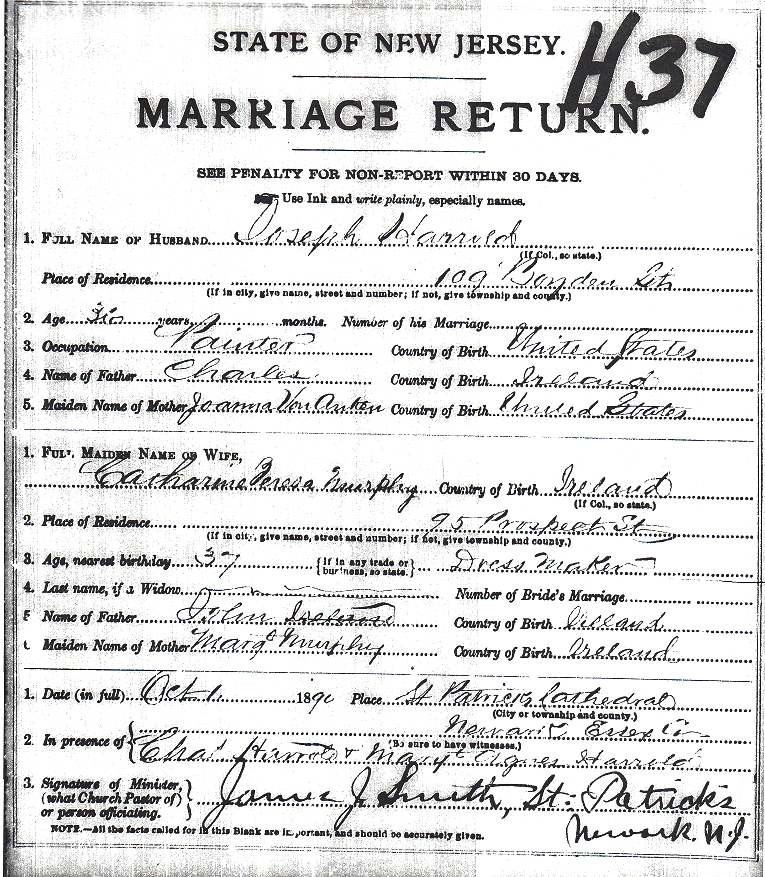 STATE OF NEW JERSEY.
H37
MARRIAGE RETURN.
SEE PENALTY FOR NON-REPORT WITHIN 30 DAYS.
Use Ink and write plainly, especially names.
1. FULL NAME OF HUSBAND Joseph Harrild
(If Col., so state.)
Place of Residence 109 Boyden
(If in city, give name, street and number; if not, give township and county.)
2. Age years, months. Number of his Marriage
3. Occupation Painter Country of Birth United States
4. Name of Father Charles Country of Birth Ireland
5. Maiden Name of Mother Joanna Country of Birth United States
1. FULL MAIDEN NAME OF WIFE,
Catharine Teresa Murphy Country of Birth Ireland
(If Col., so state.)
2. Place of Residence 95 Prospect St
(If in city, give name, street and number; if not, give township and county.)
3. Age, nearest birthday 37 {If in any trade or business, so state.} Dress Maker
4. Last name, if a Widow Number of Bride's Marriage
5 Name of Father John Country of Birth Ireland
Maiden Name of Mother Margt Murphy Country of Birth Ireland
1. Date (in full) Oct 1. 189 Place St Patricks Cathedral
(City or township and county.)
Newark Essex Co
2. In presence of { (Be sure to have witnesses.)
Chas & Mary Agnes Harrild
3. Signature of Minister, (what Church Pastor of) or person officiating. } James J. Smith, St. Patrick's
Newark. N.J.
NOTE.—All the facts called for in this Blank are important, and should be accurately given.